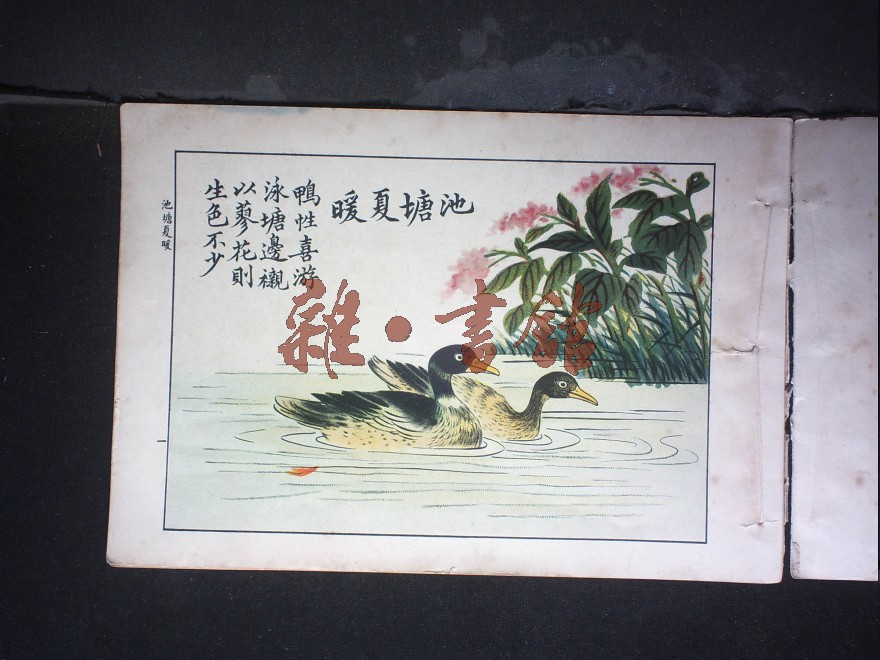 池塘夏暖
鴨性喜游
泳塘邊襯
以蓼花則
生色不少
池塘夏暖
雜·書館